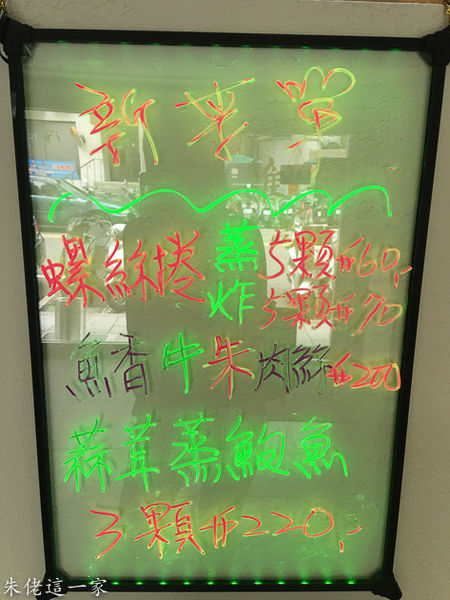 新菜單
螺絲捲 蒸 5顆$60.-
炸 5顆$70
魚香牛朱肉絲$200
蒜茸蒸鮑魚
3顆$220.-
朱佬這一家